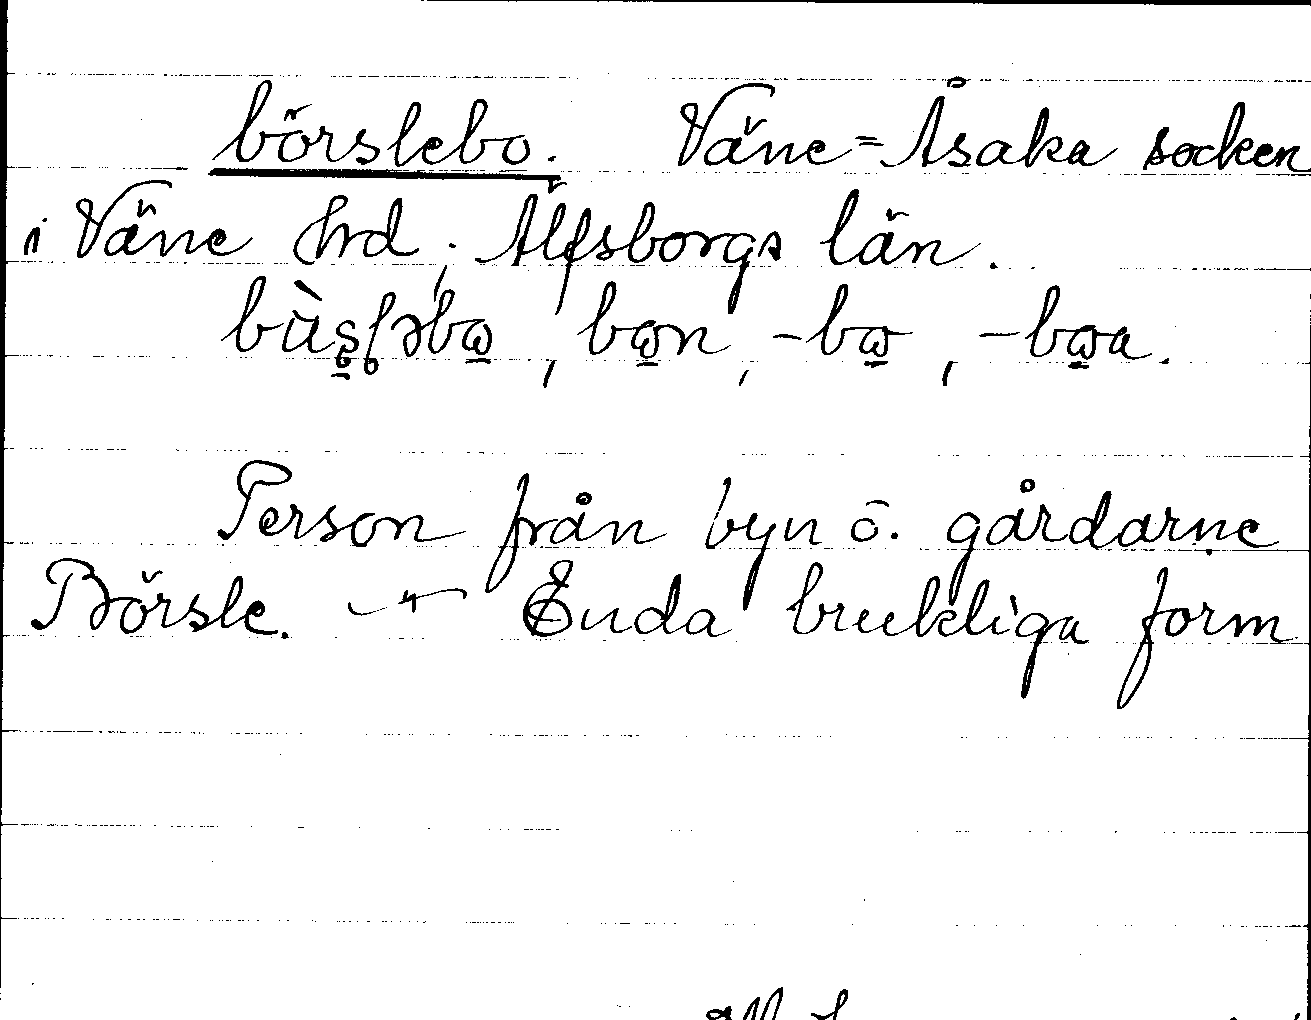 börslebo. Väne-Åsaka socken
i Väne hrd, Älfsborgs län.
bùʂlənbω, bωn, -bω, -bωa.
Person från byn o. gårdarne
Börsle. — Enda brukliga form